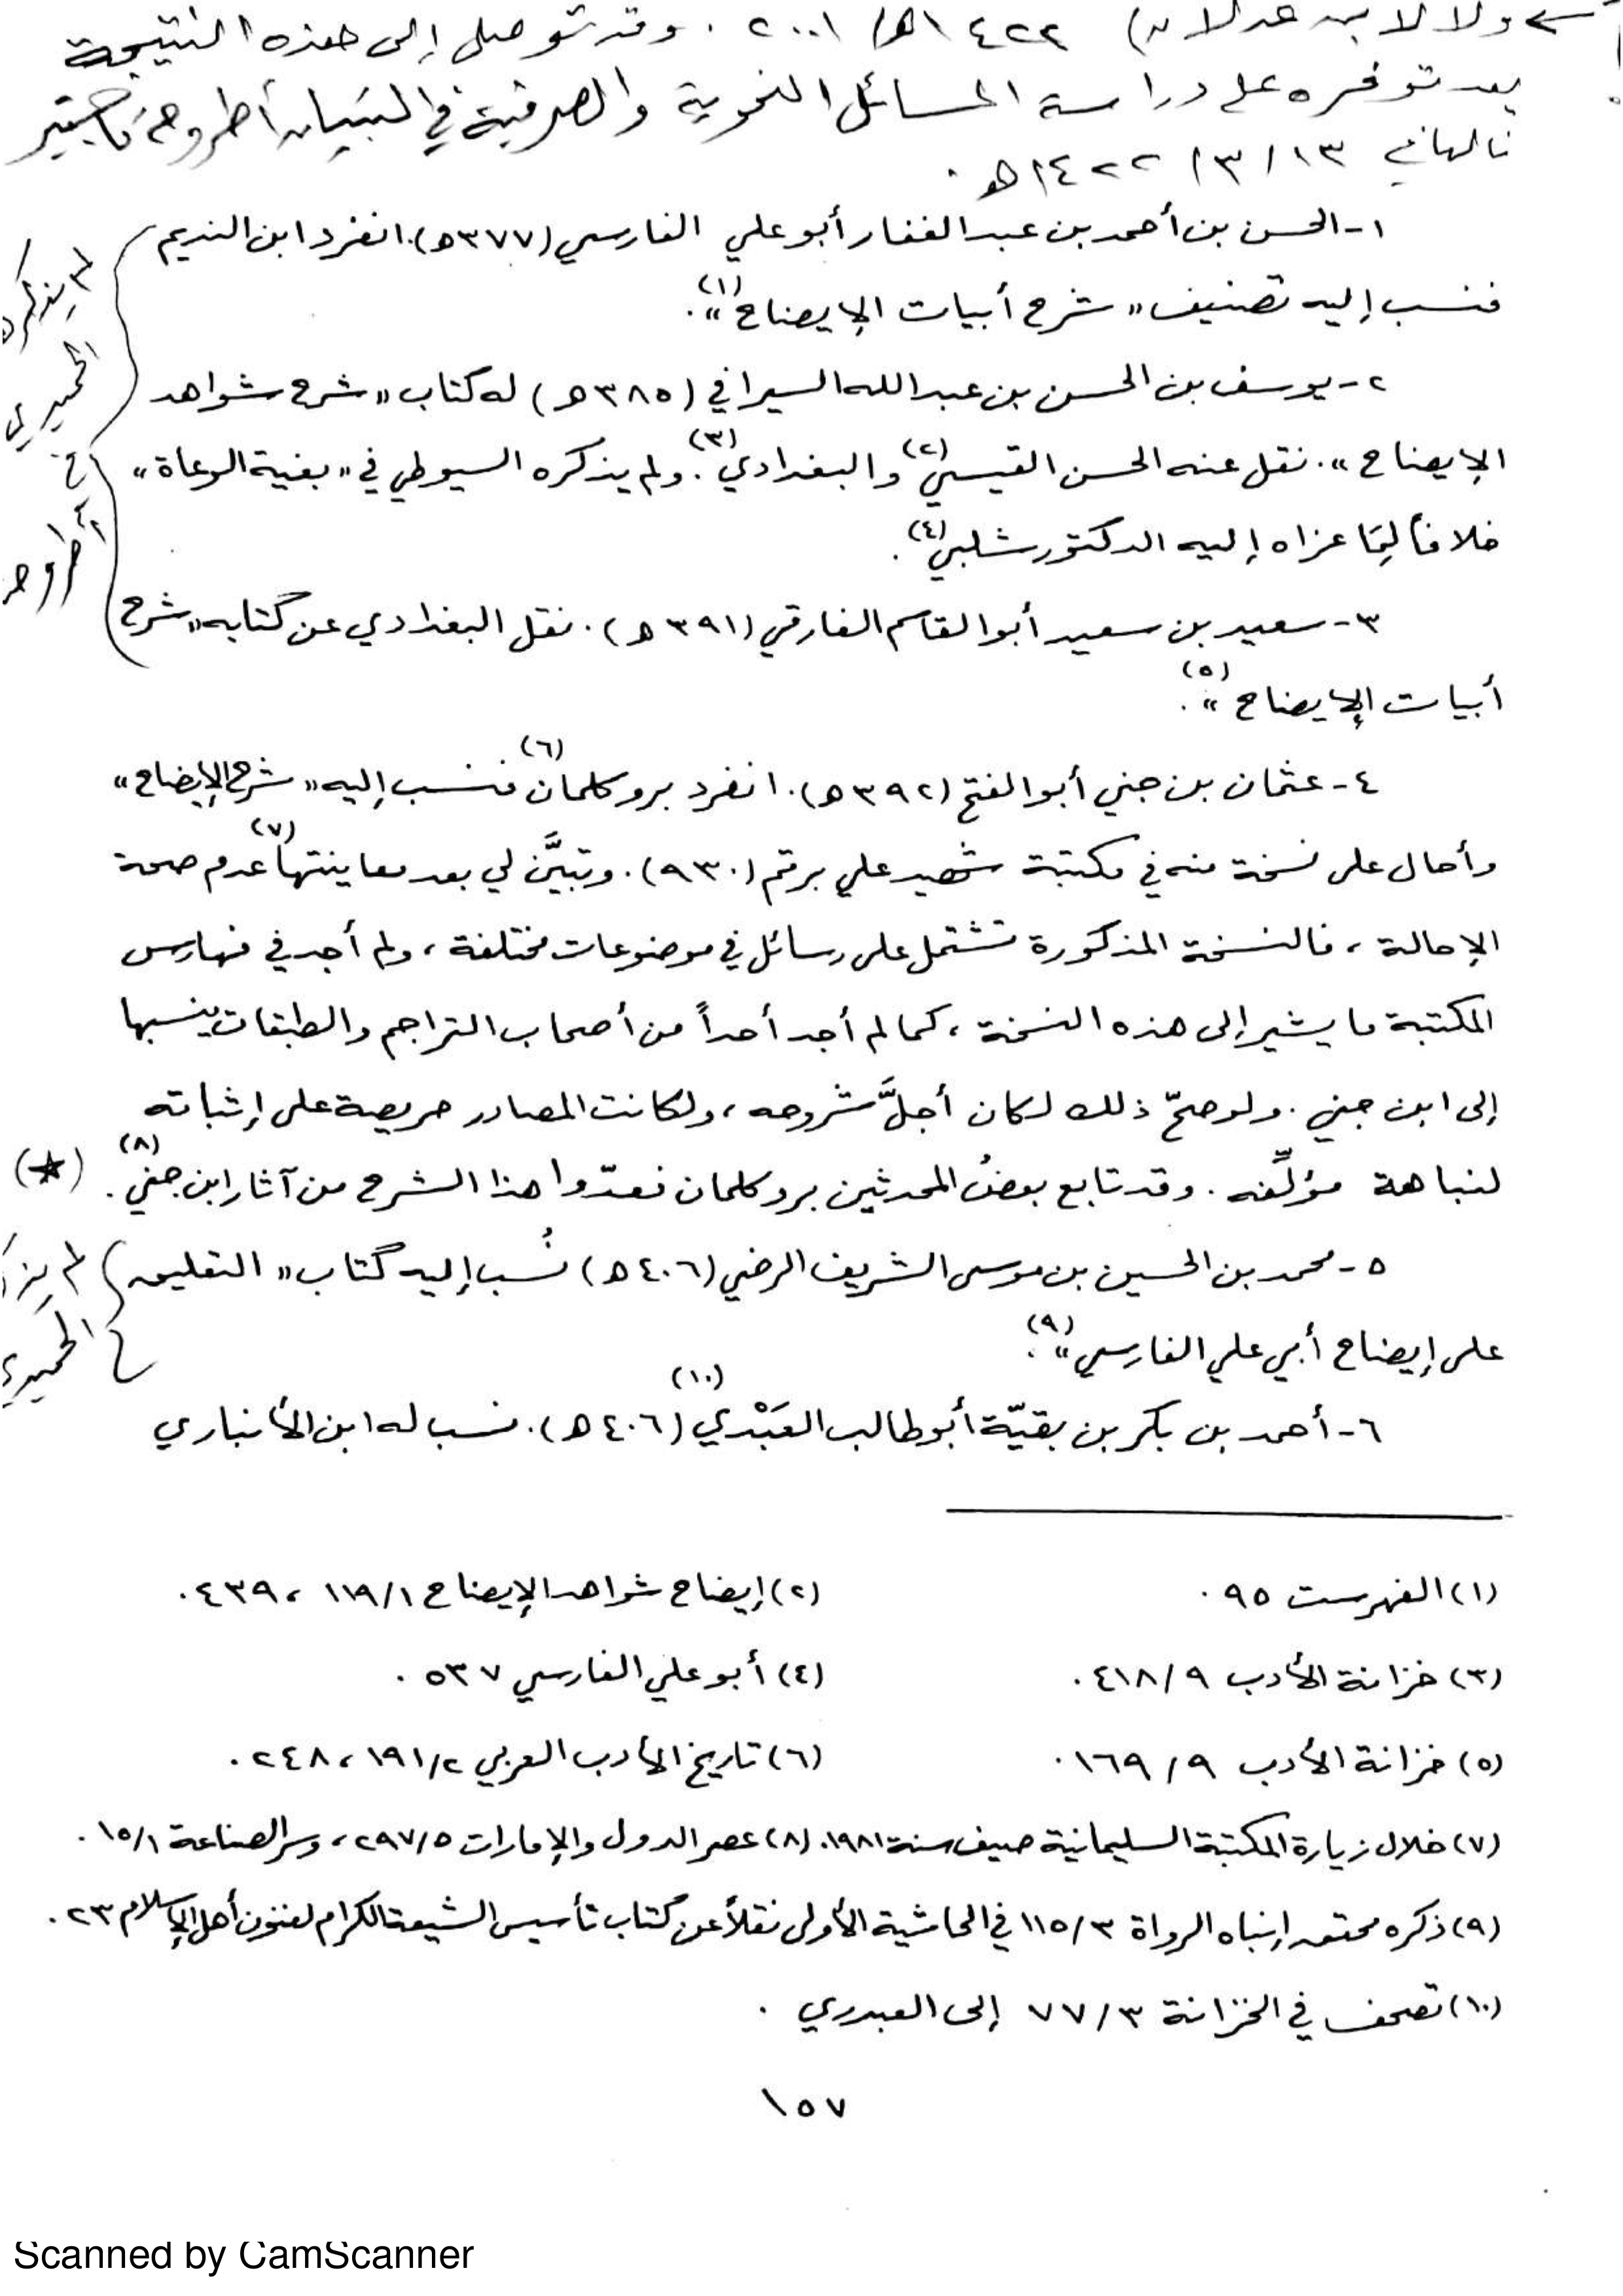 ولا لابن عدلان) ١٤٢٢هـ/ ٢٠٠١ . وقد توصل إلى هذه النتيجة
بعد توفره على دراسة المسائل النحوية والصرفية في التبيان أطروحة ماجستير
نالها في ١٣/ ٣/ ١٤٢٢هـ .
١- الحسن بن أحمد بن عبد الغفار أبو علي الفارسي (٣٧٧هـ). انفرد ابن النديم
فنسب إليه تصنيف « شرح أبيات الإيضاح »(١).
٢- يوسف بن الحسن بن عبد الله السيرافي (٣٨٥هـ) له كتاب « شرح شواهد
الإيضاح ». نقل عنه الحسن القيسي(٢) والبغدادي(٣). ولم يذكره السيوطي في « بغية الوعاة »
خلافاً لِمَا عزاه إليه الدكتور شلبي(٤).
٣- سعيد بن سعيد أبو القاسم الفارقي (٣٩١هـ). نقل البغدادي عن كتابه « شرح
أبيات الإيضاح »(٥).
لم يذكره
الحميري
في
أطروحته
٤- عثمان بن جني أبو الفتح (٣٩٢هـ). انفرد بروكلمان(٦) فنسب إليه « شرح الإيضاح »
وأحال على نسخة منه في مكتبة شهيد علي برقم (٩٣٠). وتبيَّن لي بعد معاينتها(٧) عدم صحة
الإحالة ، فالنسخة المذكورة تشتمل على رسائل في موضوعات مختلفة ، ولم أجد في فهارس
المكتبة ما يشير إلى هذه النسخة ، كما لم أجد أحداً من أصحاب التراجم والطبقات ينسبها
إلى ابن جني . ولو صحّ ذلك لكان أجلَّ شروحه ، ولكانت المصادر حريصة على إثباته
لنباهة مؤلِّفه . وقد تابع بعضُ المحدثين بروكلمان فعدّوا هذا الشرح من آثار ابن جني(٨). (★)
٥- محمد بن الحسين بن موسى الشريف الرضي (٤٠٦هـ) نُسب إليه كتاب « التعليق
على إيضاح أبي علي الفارسي »(٩).
لم يذكره
الحميري
٦- أحمد بن بكر بن بقيّة أبو طالب العَبْدي(١٠) (٤٠٦هـ). نسب له ابن الأنباري
(١) الفهرست ٩٥ .
(٢) إيضاح شواهد الإيضاح ١/ ١١٩ ، ٤٣٩ .
(٣) خزانة الأدب ٩/ ٤١٨ .
(٤) أبو علي الفارسي ٥٣٧ .
(٥) خزانة الأدب ٩/ ١٦٩ .
(٦) تاريخ الأدب العربي ٢/ ١٩١ ، ٢٤٨ .
(٧) خلال زيارة المكتبة السليمانية صيف سنة ١٩٨١. (٨) عصر الدول والإمارات ٥/ ٢٩٧ ، وسر الصناعة ١/ ١٥ .
(٩) ذكره محقق إنباه الرواة ٣/ ١١٥ في الحاشية الأولى نقلاً عن كتاب تأسيس الشيعة الكرام لفنون أهل الإسلام ٢٣ .
(١٠) تصحف في الخزانة ٣/ ٧٧ إلى العبدري .
١٥٧
Scanned by CamScanner